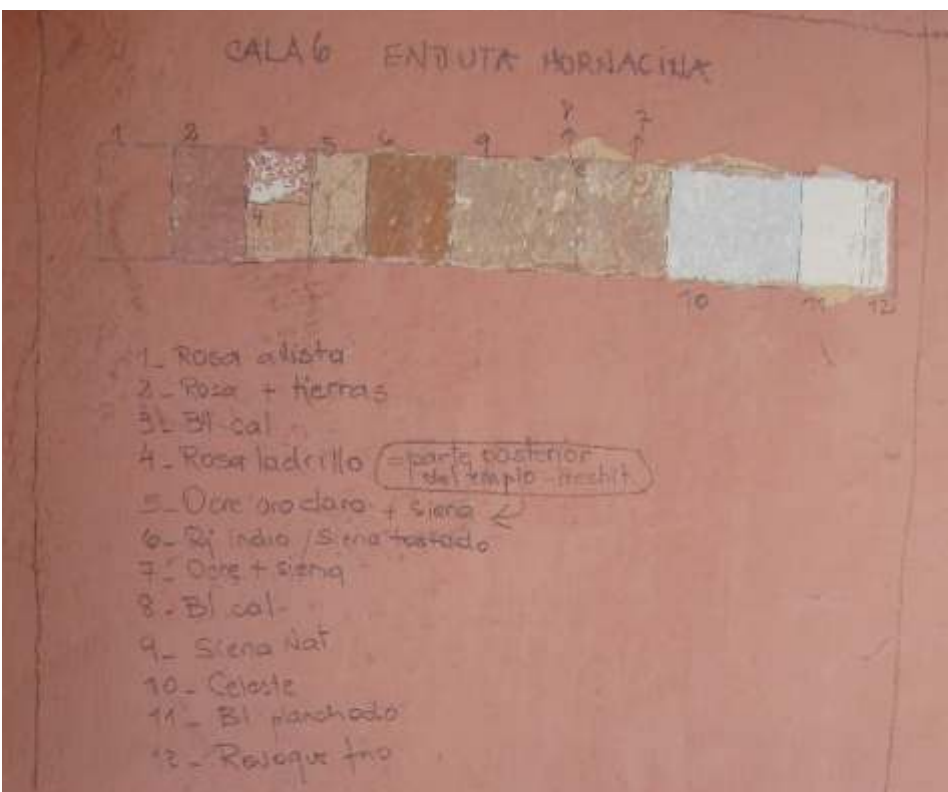 CALA 6 ENDUTA HORNACINA
8 7
1 2 3 5 6 9
4
10 11 12
1_ Rosa a vista
2_ Rosa + tierras
3_ Bl cal
4_ Rosa ladrillo = parte posterior
del templo
5_ Ocre oro claro + siena
6_ Rj indio / Siena tostado
7_ Ocre + siena
8_ Bl cal
9_ Siena Nat
10_ Celeste
11_ Bl planchado
12_ Revoque fino